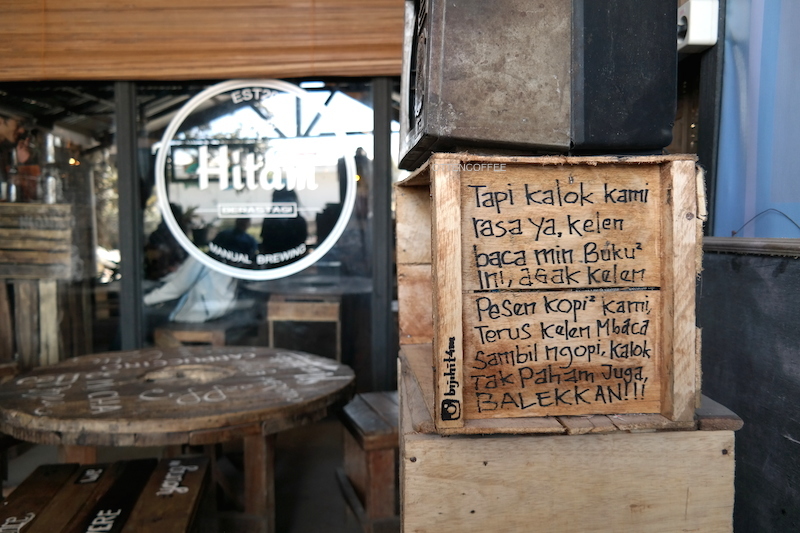 EST2
Hitam
BERASTAGI
MANUAL BREWING
NCOFFEE
Tapi kalok kami
rasa ya, kelen
baca min Buku²
Ini, agak kelen
Pesen kopi² kami,
Terus kelen Mbaca
Sambil ngopi, kalok
Tak Paham Juga,
BALEKKAN!!!
bijihit4m
we
ERE
young